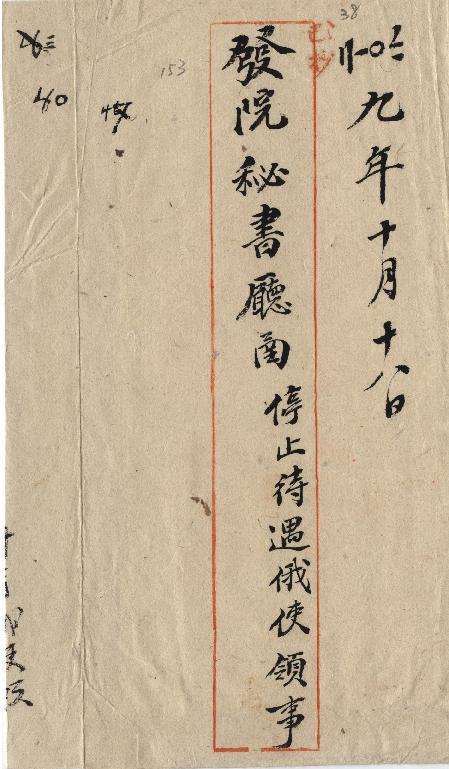 38
九年十月十八日
已抄
發院秘書廳函停止待遇俄使領事
153